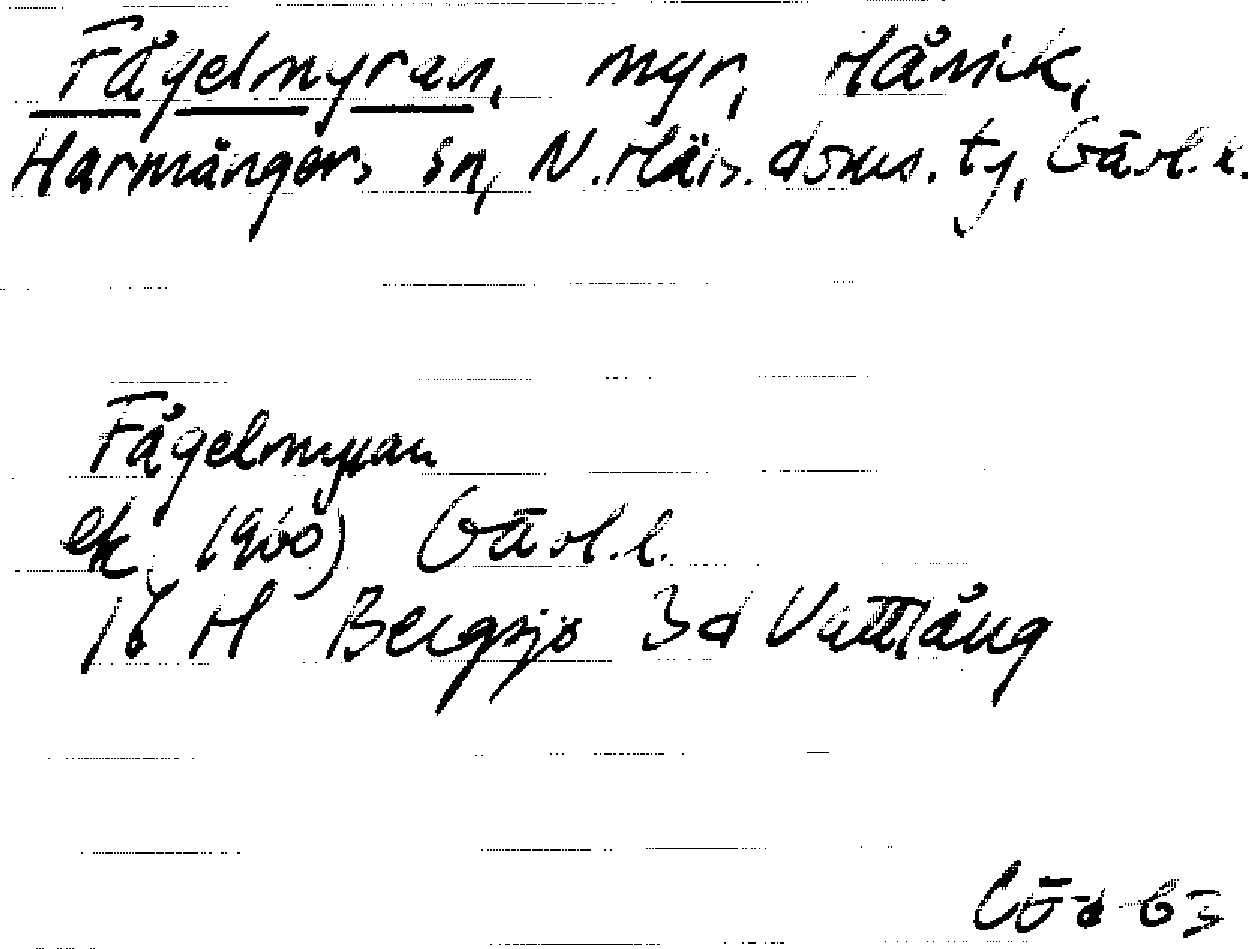 Fågelmyran, myr, Håsvik,
Harmångers sn, N. Häls. doms. tg, Gävl. l.
Fågelmyran
ek (1960) Gävl. l.
16 H Bergsjö 3d Vattlång